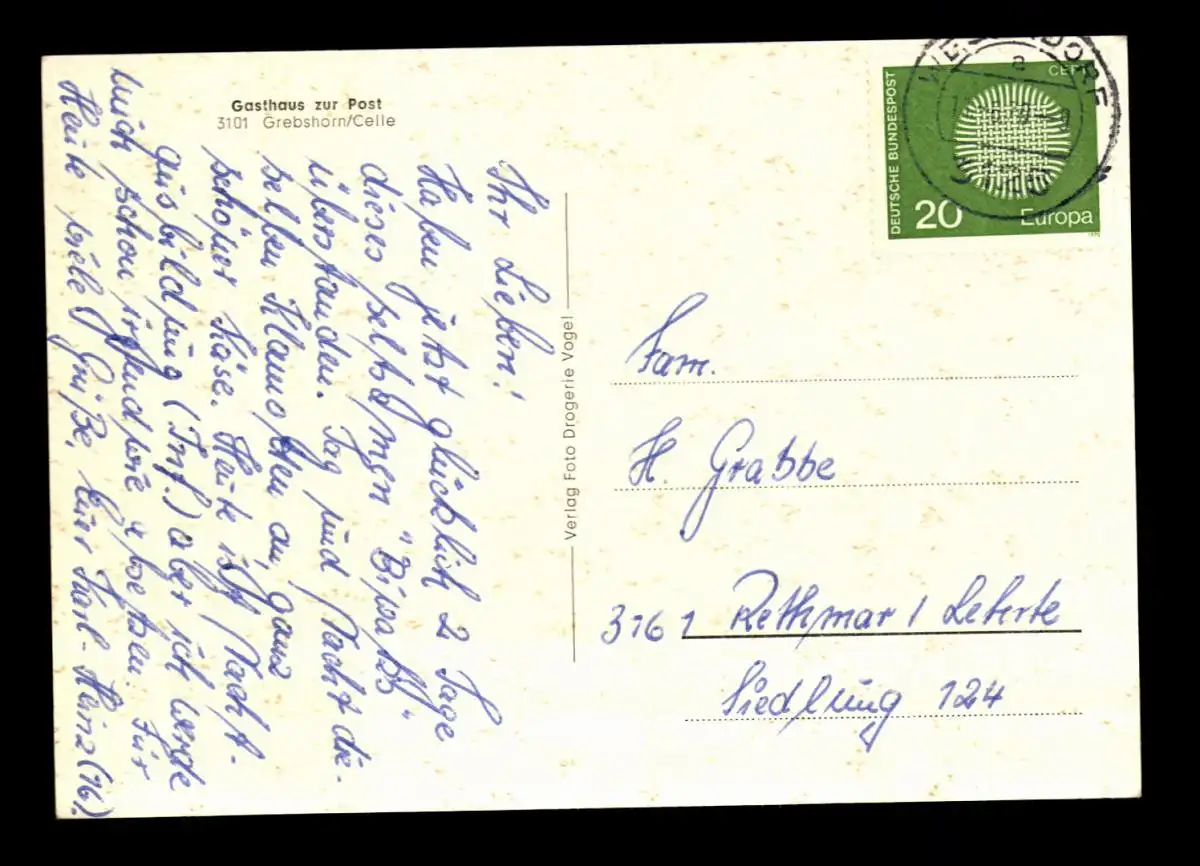 Gasthaus zur Post
3101 Grebshorn/Celle
Ihr Lieben!
Haben jetzt glücklich 2 Tage
dieses "Biwaks"
überstanden. Tag und Nacht die-
selben Klamotten an ganz
schöner Käse. Heute ist Nacht-
ausbildung (Inf.) aber ich werde
mich schon irgendwie absetzen. Für
Heute viele Grüße, Euer Karl-Heinz (16.)
Verlag Foto Drogerie Vogel
DEUTSCHE BUNDESPOST
CEPT
20
Europa
Fam.
H. Grabbe
3161 Rethmar / Lehrte
Siedlung 124